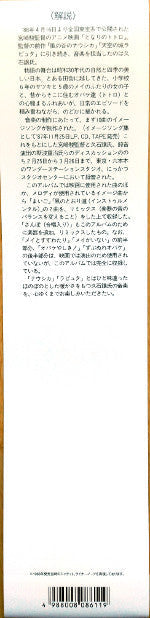 〈解説〉
'88年4月16日より全国東宝系で公開される
宮崎駿監督のアニメ映画「となりのトトロ」。
監督の前作「風の谷のナウシカ」「天空の城ラ
ピュタ」に引き続き、音楽を担当したのは久
石譲氏。
映画の舞台は昭和30年代の自然と四季の美し
い日本、とある田舎に越してきた、小学校
6年のサツキと5歳のメイのふたりの女の子
と、昔からそこに住むオバケ達(トトロ)と
の心温まるふれあいが、日常のエピソードを
組み重ねながら、のどかに描かれる。
音楽の制作にあたって、まずは1歌のイメ
ージソングが制作された。(イメージソング集
として'87年11月25日、LP, CD, TAPE発売)こ
れをもとにした宮崎駿監督と久石譲氏、録音
演出の
ち2月25日から3月26日まで、東京・六本木
のワンダーステーションスタジオ、にっかつ
スタジオセンターにおいて録音された。
このアルバムでは映画に使用された曲のほ
か、メロディが使用されているイメージ曲か
ら「まいご」、「風のとおり道(インストゥルメ
ンタル)」の2曲を、リミックス(楽器の音の
バランスを変えること)をした上で収録した。
「さんぽ(合唱入り)」もこのアルバムのため
に演奏を追加、リミックスしたもの。なお、
「メイとすすわたり」、「メイがいない」の前半
部分、「オバケやしき!」、「ずぶぬれオバケ」
の後半部分は、映画では演出のため使用され
ていないが、このアルバムでは完全に収録し
ている。
「ナウシカ」「ラピュタ」とはひと味違った
ほのぼのとした暖かさをもつ久石譲氏の音楽
を、心ゆくまでお楽しみいただきたい。
4 988008 086119